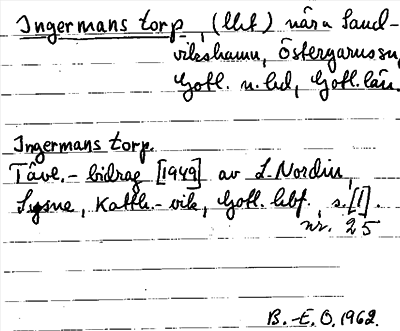 Ingermans torp, (lht) nära Sand-
vikshamn, Östergarns sn,
Gotl. n. hd, Gotl. län.
Ingermans torp.
Tävl.- bidrag [1949] av L. Nordin,
Sysne, Katth.-vik, Gotl. hbf. s. [1].
nr. 25
B.-E. O. 1962.